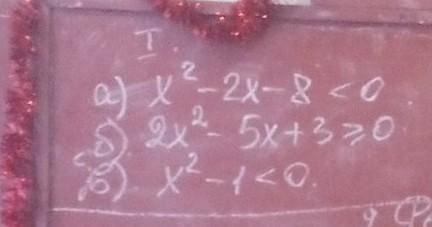 I.
а) x² - 2x - 8 < 0
б) 2x² - 5x + 3 ≥ 0
в) x² - 1 < 0.